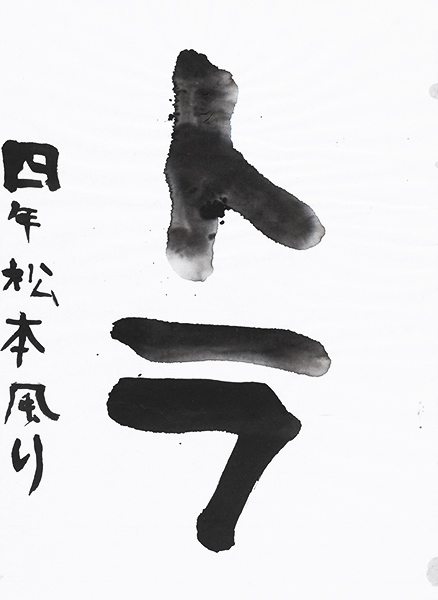 トラ
四年 松本風り